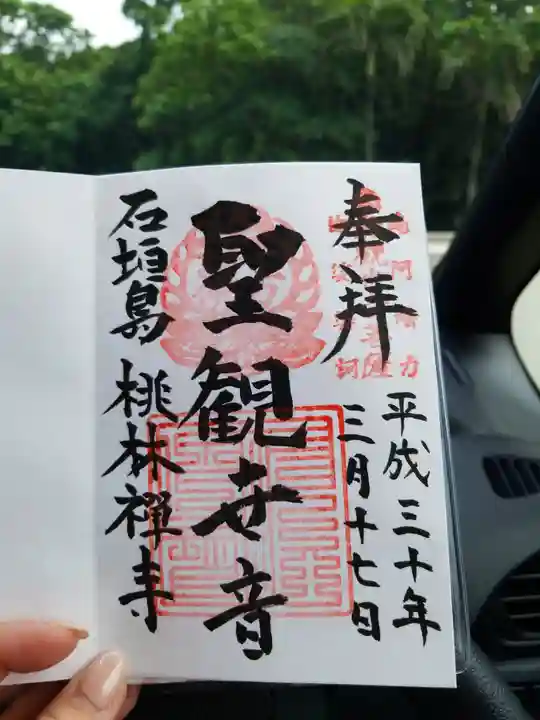 奉拝
平成三十年
三月十七日
聖観世音
石垣島 桃林禅寺